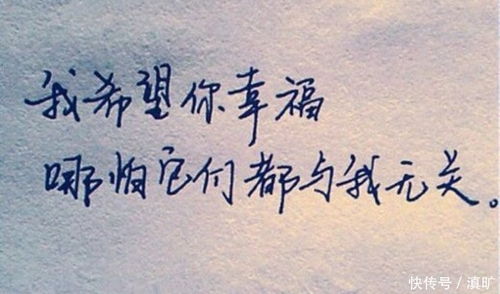 我希望你幸福
哪怕它们都与我无关。
快传号/滇旷